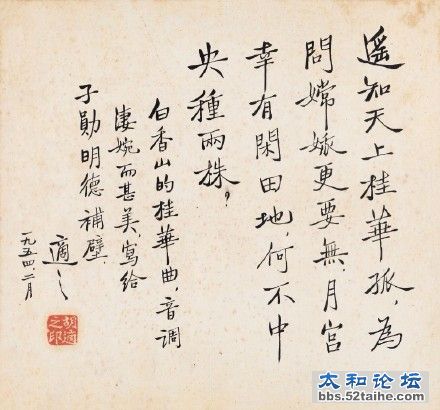 遙知天上桂華孤，為
問嫦娥更要無．月宮
幸有閑田地，何不中
央種兩株？
白香山的桂華曲，音調
淒婉而甚美，寫給
子勛明德補壁．
適之
一九五四，二月
胡適之印
太和论坛
bbs.52taihe.com